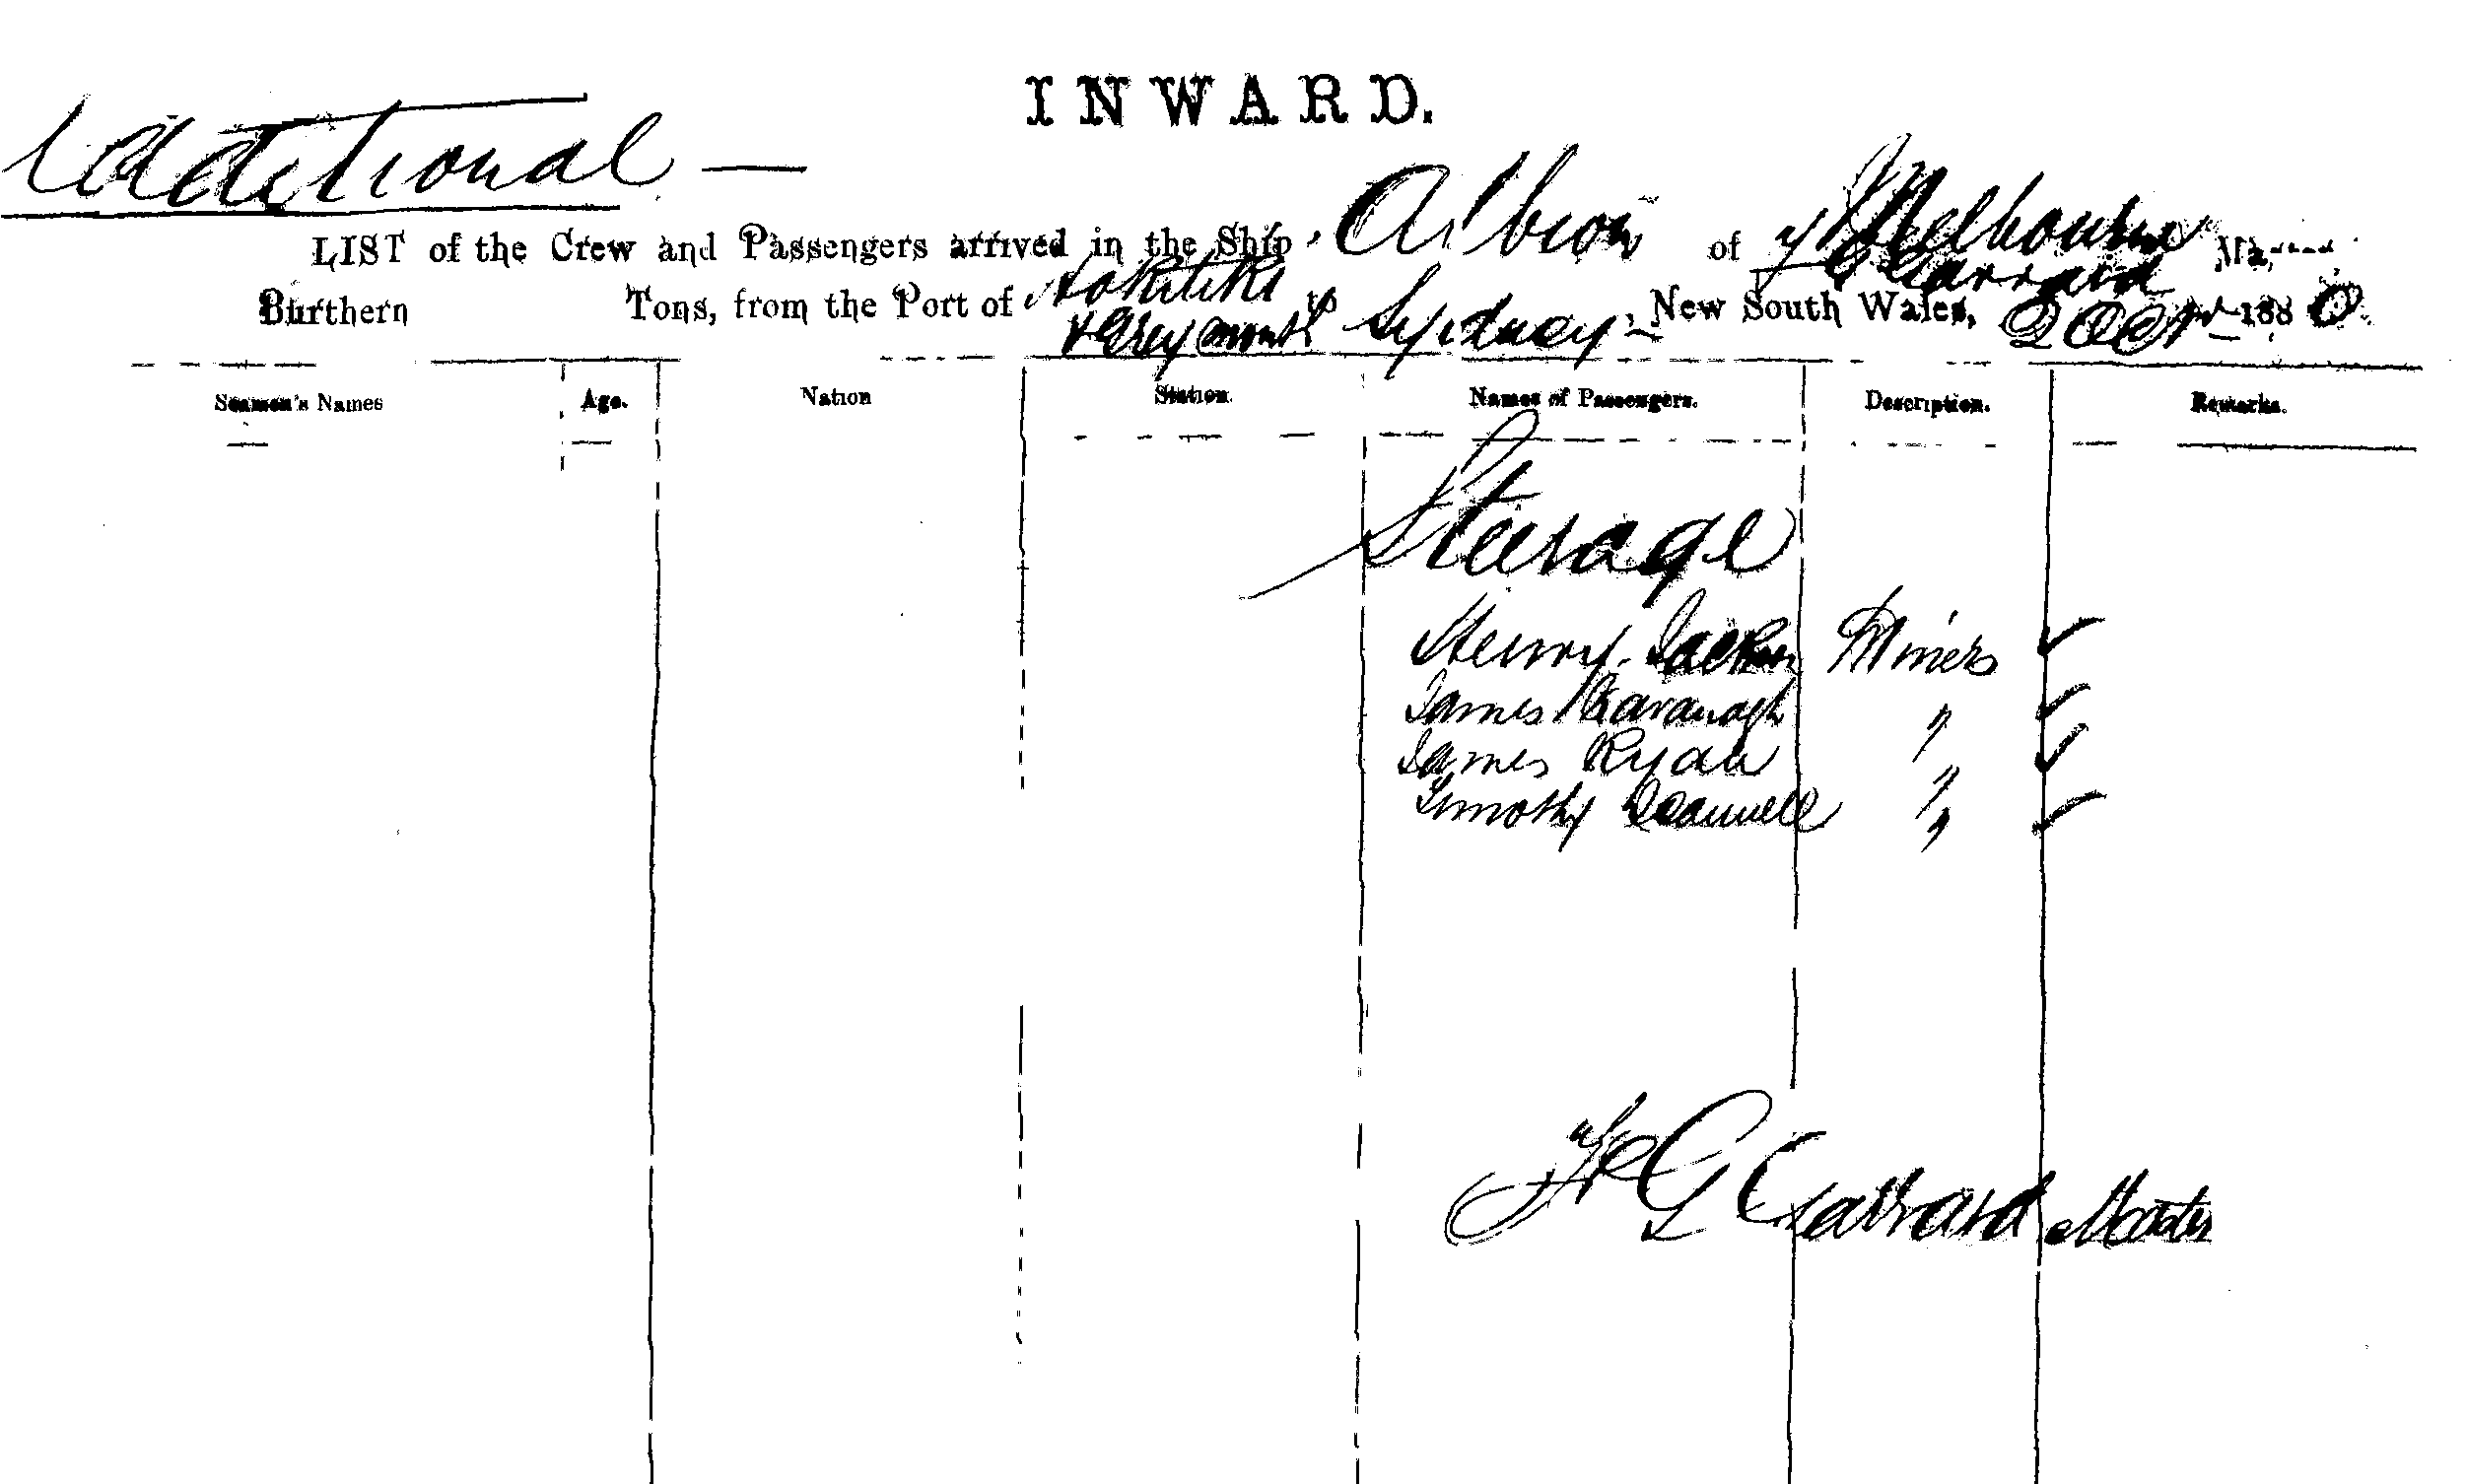 INWARD.
Additional —
LIST of the Crew and Passengers arrived in the Ship Albion of Melbourne
Garrard
Burthern Tons, from the Port of Hokitika to Sydney, New South Wales, 2 Octr 1880
& Greymouth
Seamen's Names Age. Nation Station. Names of Passengers. Description. Remarks.
Steerage
Henry Jackson Miners ✓
James Kavanagh " ✓
James Ryan " ✓
Timothy " ✓
G Garrard Master